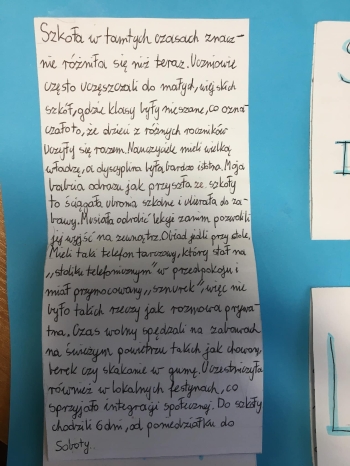 Szkoła w tamtych czasach znacz-
nie różniła się niż teraz. Uczniowie
często uczęszczali do małych, wiejskich
szkół, gdzie klasy były mieszane, co ozna-
czało to, że dzieci z różnych roczników
uczyły się razem. Nauczyciele mieli wielką
władzę, a dyscyplina była bardzo istotna. Moja
babcia odrazu jak przyszła ze szkoły
to ściągała ubrania szkolne i ubierała do za-
bawy. Musiała odrobić lekcje zanim pozwolili
jej wyjść na zewnątrz. Obiad jedli przy stole.
Mieli taki telefon tarczowy, który stał na
„stoliku telefonicznym" w przedpokoju i
miał przymocowany „sznurek", więc nie
było takich rzeczy jak rozmowa prywa-
tna. Czas wolny spędzali na zabawach
na świeżym powietrzu takich jak chowany,
berek czy skakanie w gumę. Uczestniczyła
również w lokalnych festynach, co
sprzyjało integracji społecznej. Do szkoły
chodzili 6 dni, od poniedziałku do
Soboty.